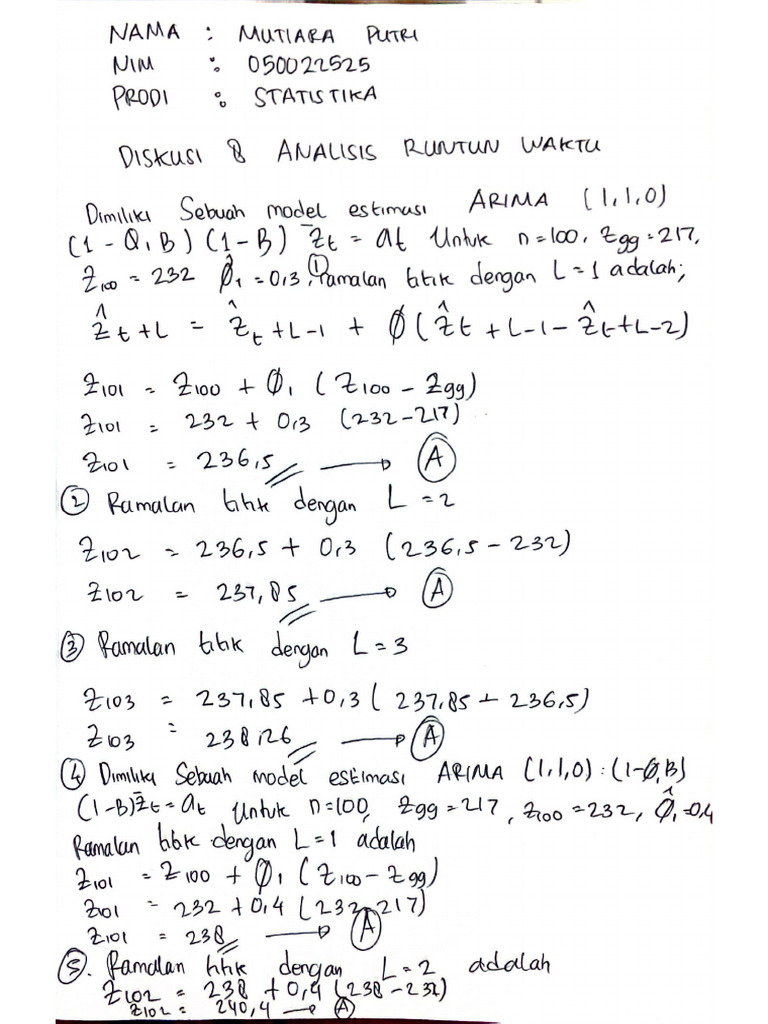 NAMA : MUTIARA PUTRI
NIM : 050022525
PRODI : STATISTIKA
DISKUSI 8 ANALISIS RUNTUN WAKTU
Dimiliki Sebuah model estimasi ARIMA (1,1,0)
(1 - Ø₁B) (1-B) Z̄t = at Untuk n=100, Z99=217,
Z100 = 232 Ø̂1 = 0,3, ① Ramalan titik dengan L=1 adalah;
Ẑt+L = Ẑt+L-1 + Ø(Ẑt+L-1 - Ẑt+L-2)
Z101 = Z100 + Ø1 (Z100 - Z99)
Z101 = 232 + 0,3 (232-217)
Z101 = 236,5 → A
② Ramalan titik dengan L=2
Z102 = 236,5 + 0,3 (236,5-232)
Z102 = 237,85 → A
③ Ramalan titik dengan L=3
Z103 = 237,85 +0,3 ( 237,85 - 236,5)
Z103 = 238,26 → A
④ Dimiliki Sebuah model estimasi ARIMA (1,1,0) : (1-Ø,B)
(1-B)Z̄t=at Untuk n=100, Z99=217, Z100=232, Ø̂1=0,4
Ramalan titik dengan L=1 adalah
Z101 = Z100 + Ø1 (Z100-Z99)
Z101 = 232 +0,4 (232-217)
Z101 = 238 → A
⑤. Ramalan titik dengan L=2 adalah
Z102 = 238 + 0,4 (238-232)
Z102 = 240,4 → A